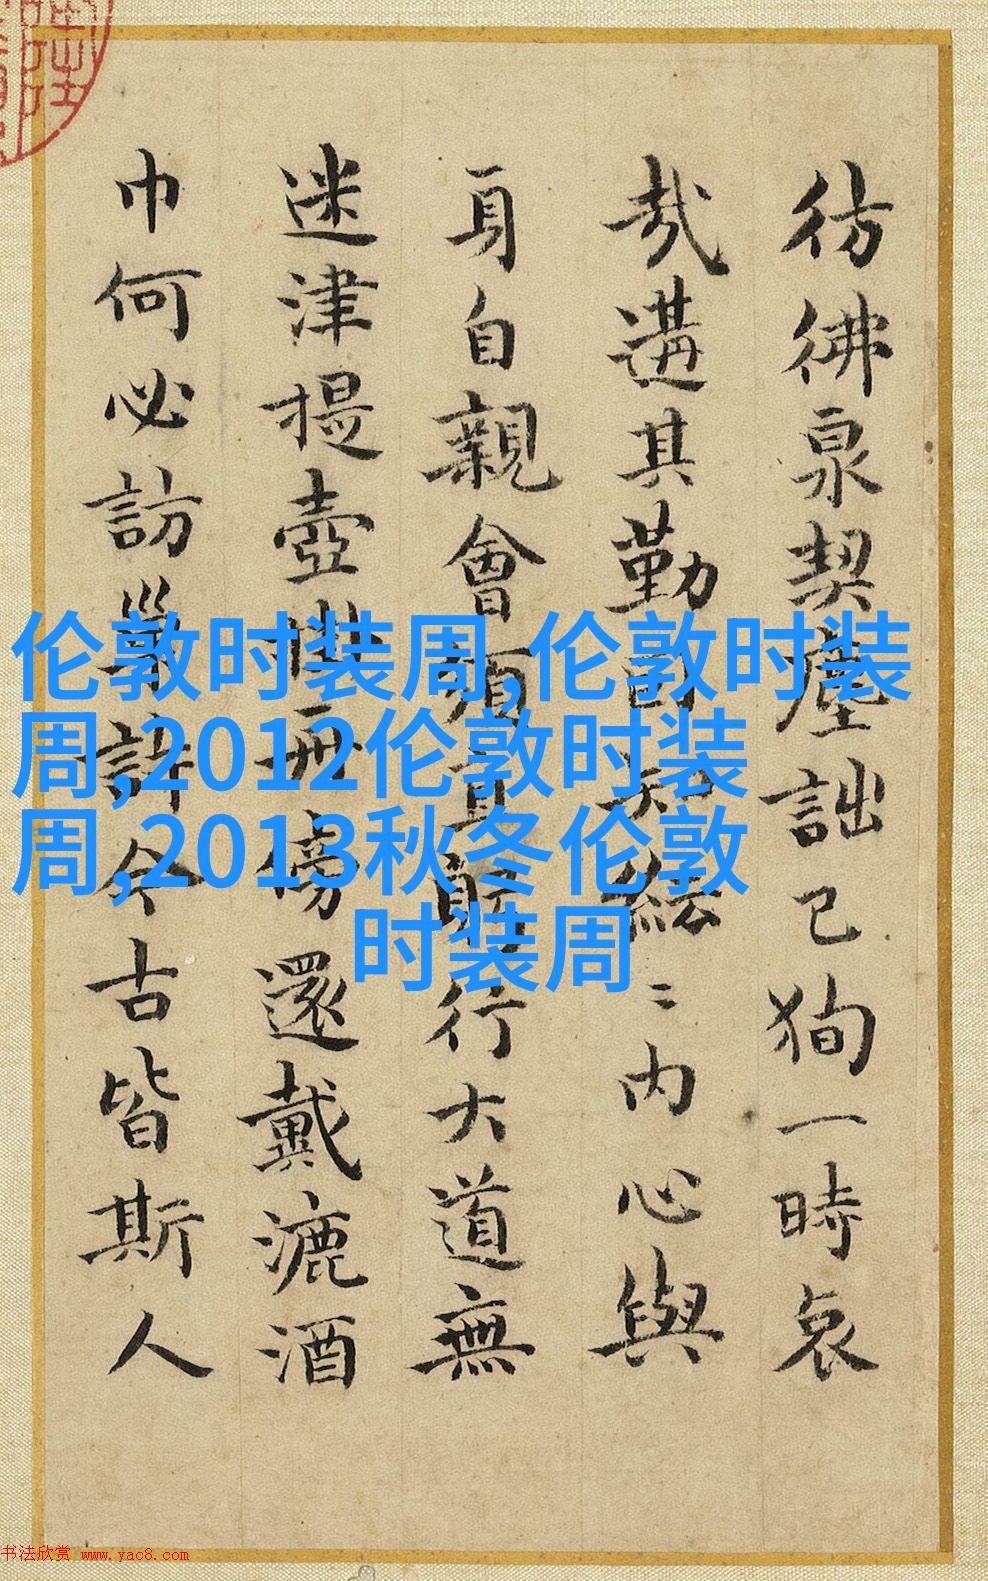 伦敦时装周,伦敦时装
周,2012伦敦时装
周,2013秋冬伦敦
时装周
彷彿泉契塵詘已狥一時哀
哉遘其勤内心與
身自親會須直行大道無
迷津提壺傍還戴漉酒
巾何必訪巢許今古皆斯人
书法欣赏 www.yac8.com